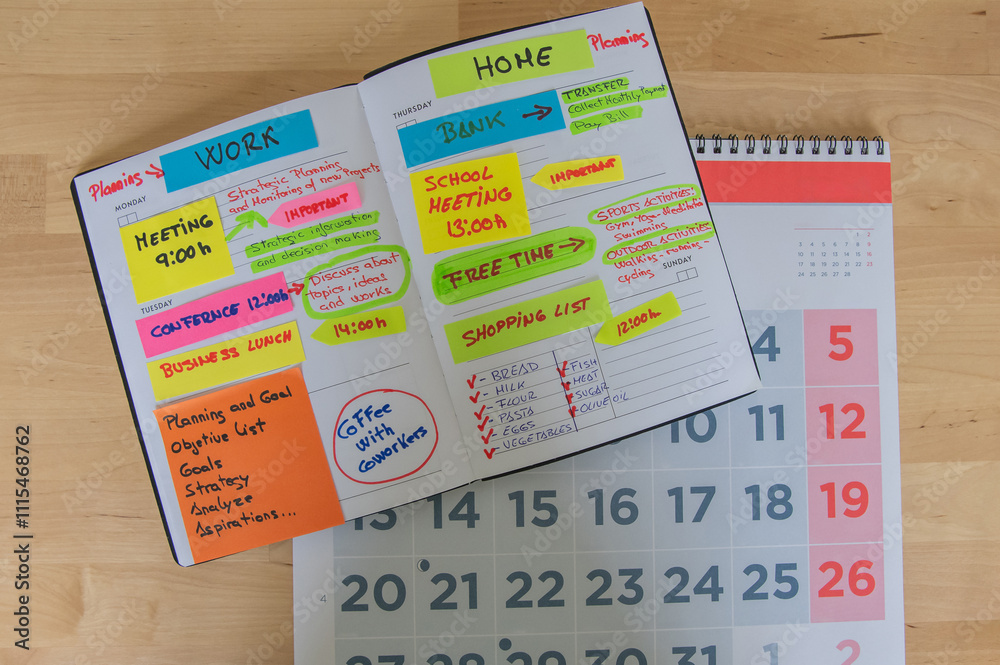 WORK
Planning →
MONDAY
Strategic Planning
and Monitoring of new Projects
MEETING
9:00h
IMPORTANT
Strategic information
and decision making
TUESDAY
CONFERNCE 12:00h
Discuss about
topics, ideas
and works
BUSINESS LUNCH
14:00h
Planning and Goal
Objetive List
Goals
Strategy
Analyze
Aspirations...
Coffee
with
coworkers
HOME
Planning
THURSDAY
BANK →
TRANSFER
Collect Monthly Payment
Pay Bill
SCHOOL
MEETING
13:00h
IMPORTANT
FREE TIME →
SPORTS ACTIVITIES:
Gym, Yoga-Meditation
Swimming
OUTDOOR ACTIVITIES:
Walking - running
cycling
SUNDAY
SHOPPING LIST
12:00h
✓- BREAD
✓- MILK
✓- FLOUR
✓- PASTA
✓- EGGS
✓- VEGETABLES
✓- FISH
✓- MEAT
✓- SUGAR
✓- OLIVE OIL
4 5
10 11 12
13 14 15 16 17 18 19
4 20 21 22 23 24 25 26
27 28 29 30 31 1 2
Adobe Stock | #1115468762